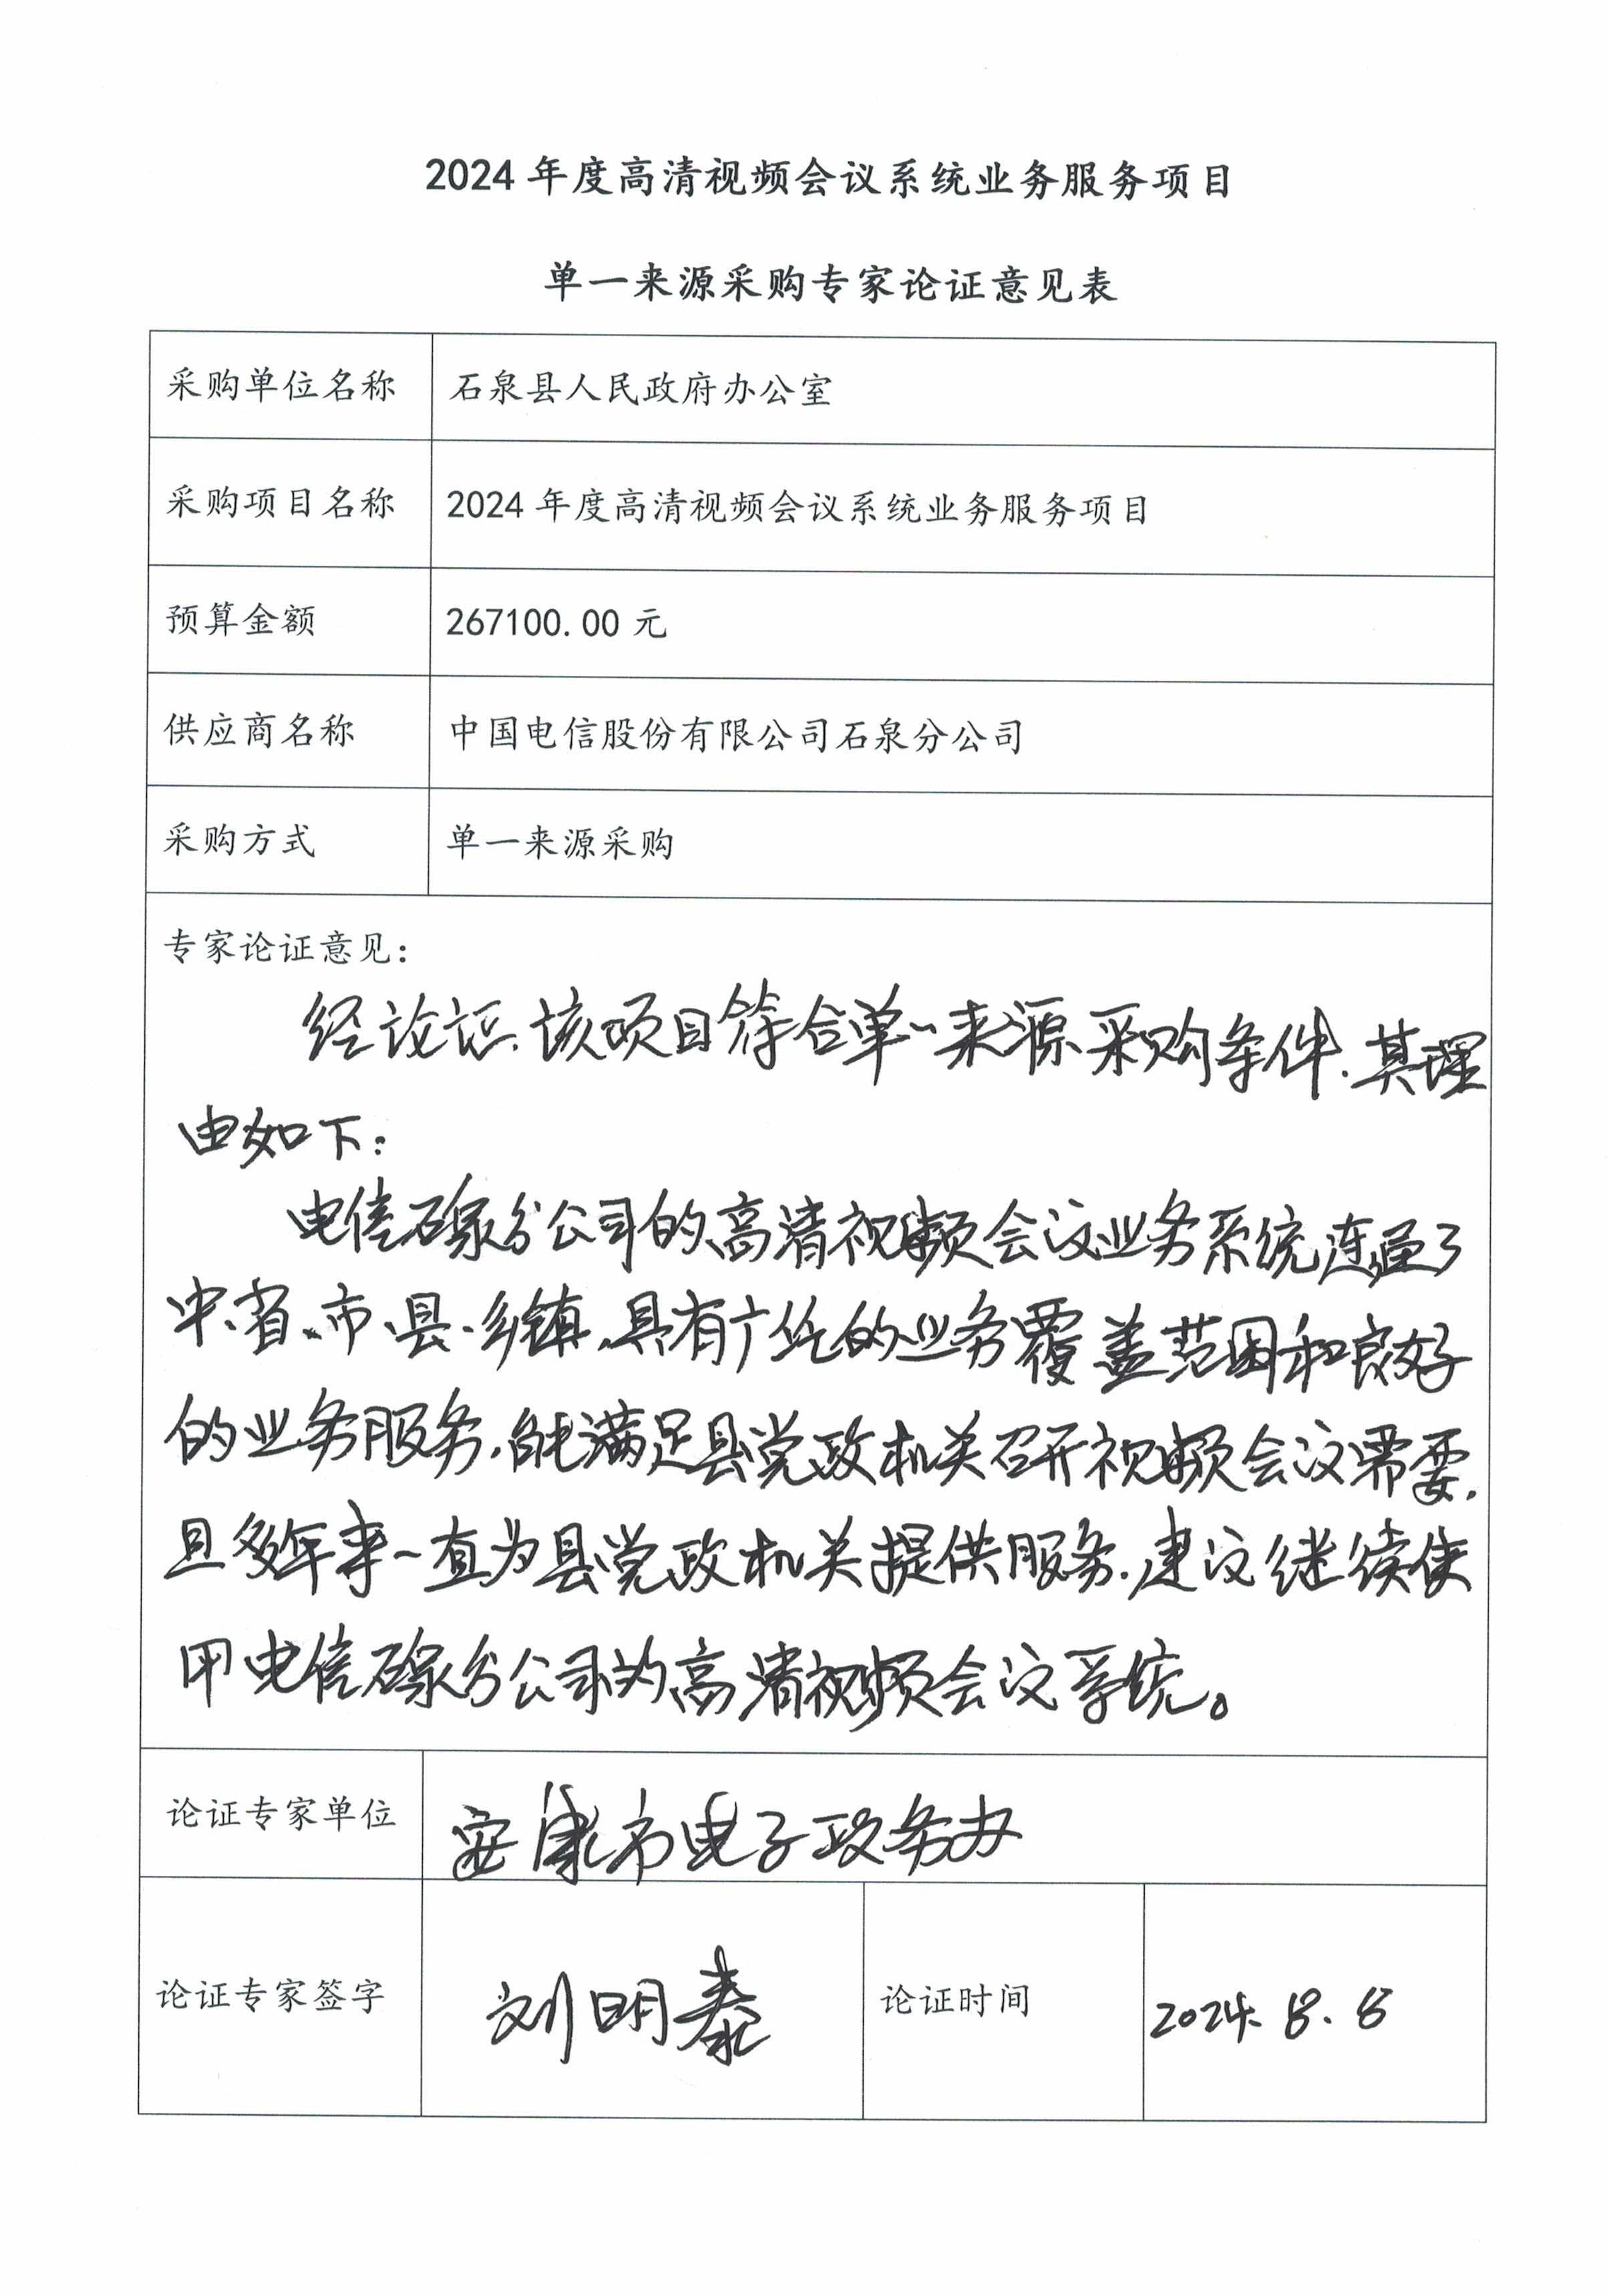 2024年度高清视频会议系统业务服务项目
单一来源采购专家论证意见表
采购单位名称 石泉县人民政府办公室
采购项目名称 2024年度高清视频会议系统业务服务项目
预算金额 267100.00元
供应商名称 中国电信股份有限公司石泉分公司
采购方式 单一来源采购
专家论证意见：
经论证、该项目符合单一来源采购条件.其理
由如下：
电信石泉分公司的高清视频会议业务系统连通了
中、省、市、县、乡镇,具有广泛的业务覆盖范围和良好
的业务服务,能满足县党政机关召开视频会议需要,
且多年来一直为县党政机关提供服务.建议继续使
用电信石泉分公司的高清视频会议系统。
论证专家单位 安康市电子政务办
论证专家签字 刘明泰 论证时间 2024.8.8